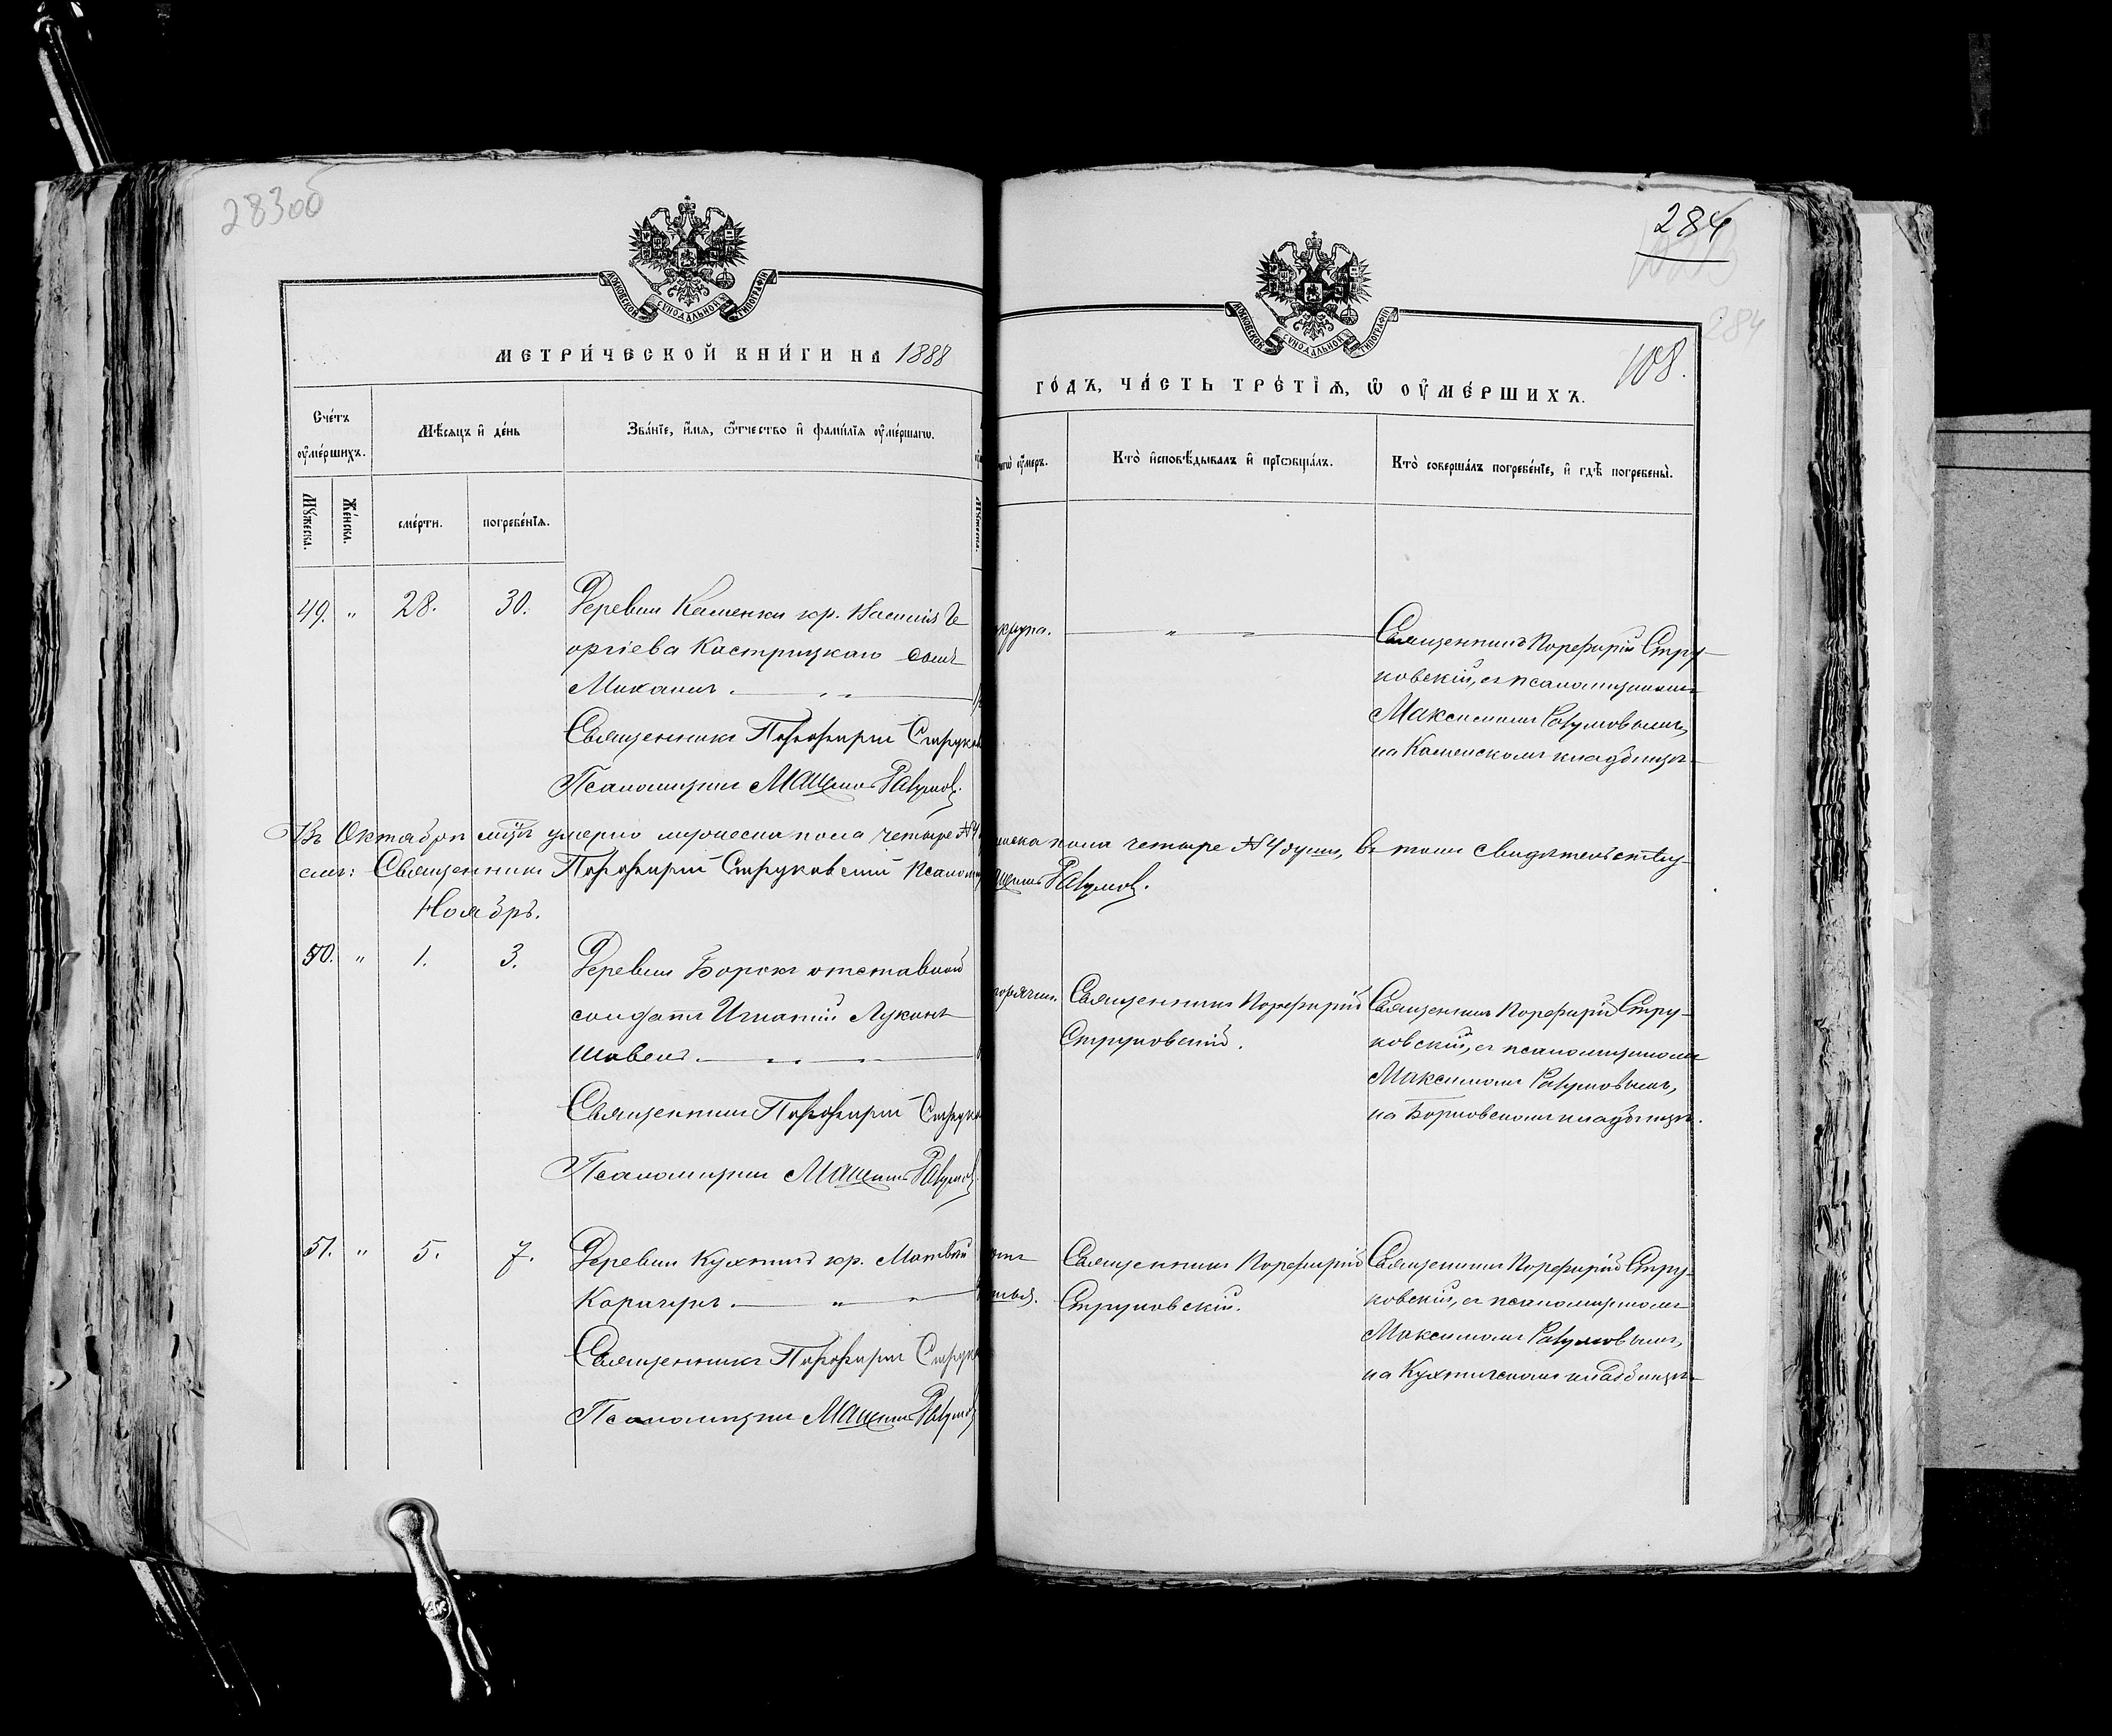 283об
МОСКОВСКОЙ СѴНОДАЛЬНОЙ ТИПОГРАФІИ
МЕТРИ́ЧЕСКОЙ КНИ́ГИ НА 1888
Сче́тъ ᲂу҆ме́ршихъ.
Мѣ́сяцъ и҆ де́нь
Зва́нїе, и҆́мѧ, ѻ҆́тчество и҆ фами́лїѧ ᲂу҆ме́ршагѡ.
Мꙋ́жеска.
Же́нска.
сме́рти.
погребе́нїѧ.
49. " 28. 30. Деревни Каменки кр. Василія Ге
оргіева Кострицкаго сынъ
Михаилъ.
Священникъ Порфирій Струков
Псаломщикъ Максимъ Разумов
Въ Октябрѣ мцѣ умерло мужеска пола четыре №4
Священникъ Порфирій Струковскій Псалом
Ноябрь.
50. " 1. 3. Деревни Борокъ отставной
солдатъ Игнатій Лукинъ
Священникъ Порфирій Струков
Псаломщикъ Максимъ Разумов
51. " 5. 7. Деревни Кухтичъ кр. Матвѣй
Священникъ Порфирій Струк
Псаломщикъ Максимъ Разумов
284
284
108.
МОСКОВСКОЙ СѴНОДАЛЬНОЙ ТИПОГРАФІИ
ГО́ДЪ, ЧА́СТЬ ТРЕ́ТЇѦ, Ѡ҆ ОУ҆МЕ́РШИХЪ.
ᲂу҆́меръ.
Кто̀ и҆сповѣ́дывалъ и҆ прїѡбща́лъ.
Кто̀ соверша́лъ погребе́нїе, и҆ гдѣ̀ погребены̀.
Священникъ Порфирій Стру-
ковскій, съ псаломщикомъ
Максимомъ Разумовымъ,
на Каменскомъ кладбищѣ
женска пола четыре №4 души, въ томъ свидѣтельству
Разумов.
Священникъ Порфирій
Струковскій.
Священникъ Порфирій Стру-
ковскій, съ псаломщикомъ
Максимомъ Разумовымъ,
на Борковскомъ кладбищѣ.
Священникъ Порфирій
Струковскій.
Священникъ Порфирій Стру-
ковскій, съ псаломщикомъ
Максимомъ Разумовымъ,
на Кухтичскомъ кладбищѣ